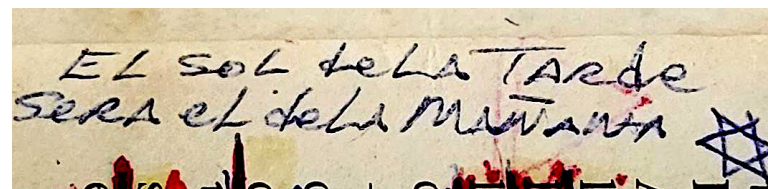 EL SOL de LA TARde
SeRA eL de LA MAÑANA